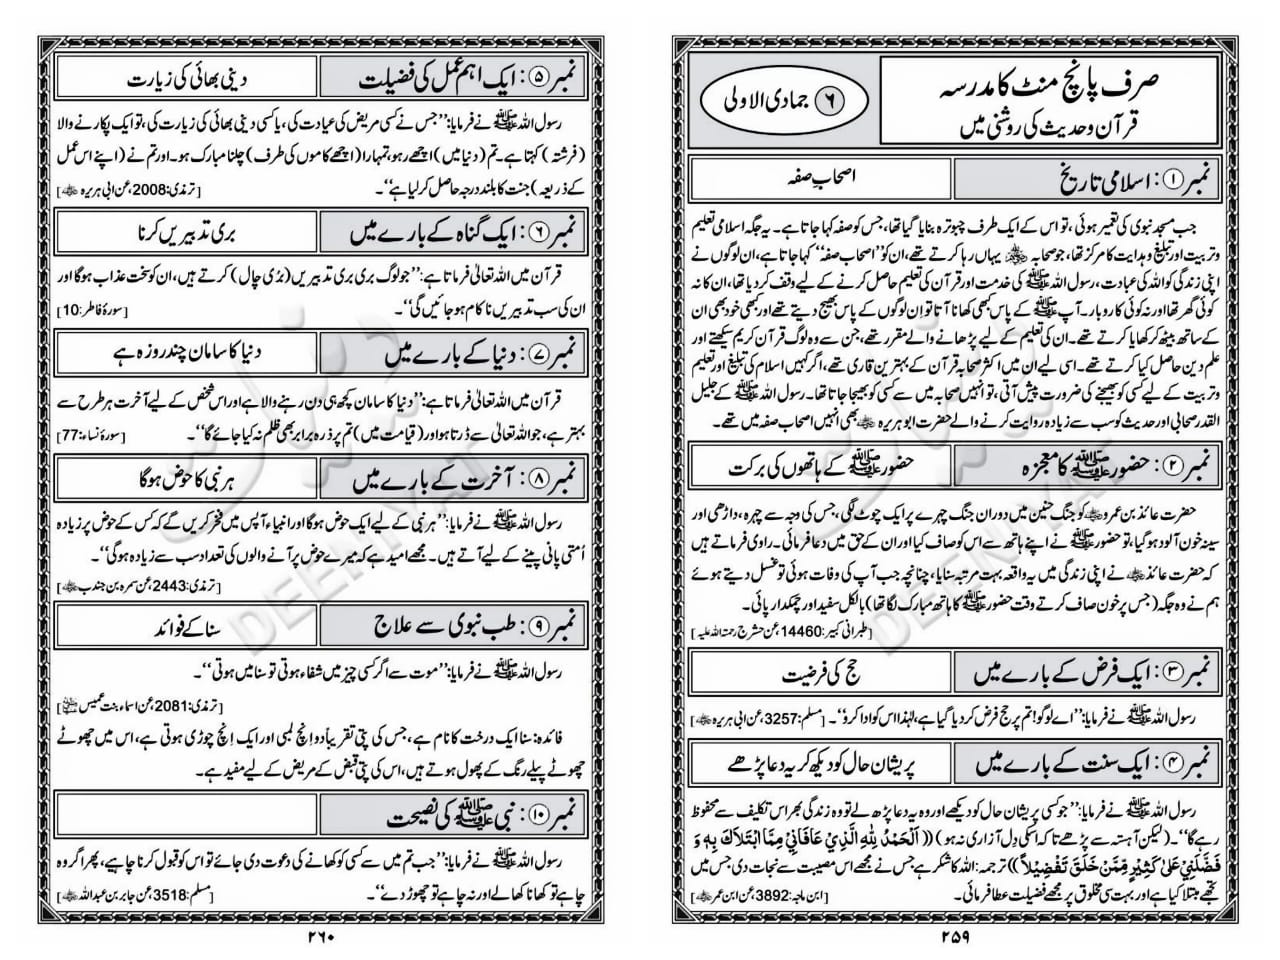 صرف پانچ منٹ کا مدرسہ
قرآن و حدیث کی روشنی میں
۶ جمادی الاولیٰ
نمبر ①: اسلامی تاریخ
اصحابِ صفہ
جب مسجد نبوی کی تعمیر ہوئی، تو اس کے ایک طرف چبوترہ بنایا گیا تھا، جس کو صفہ کہا جاتا ہے۔ یہ جگہ اسلامی تعلیم
و تربیت اور تبلیغ و ہدایت کا مرکز تھا، جو صحابہ ؓ یہاں رہا کرتے تھے، ان کو ’’اصحاب صفہ‘‘ کہا جاتا ہے، ان لوگوں نے
اپنی زندگی کو اللہ کی عبادت، رسول اللہ ﷺ کی خدمت اور قرآن کی تعلیم حاصل کرنے کے لیے وقف کر دیا تھا، ان کا نہ
کوئی گھر تھا اور نہ کوئی کاروبار۔ آپ ﷺ کے پاس کبھی کھانا آتا تو اِن لوگوں کے پاس بھیج دیتے تھے اور کبھی خود بھی ان
کے ساتھ بیٹھ کر کھایا کرتے تھے۔ ان کی تعلیم کے لیے پڑھانے والے مقرر تھے، جن سے وہ لوگ قرآن کریم سیکھتے اور
علم دین حاصل کیا کرتے تھے۔ اسی لیے ان میں اکثر صحابہ قرآن کے بہترین قاری تھے، اگر کہیں اسلام کی تبلیغ اور تعلیم
و تربیت کے لیے کسی کو بھیجنے کی ضرورت پیش آتی، تو انہیں صحابہ میں سے کسی کو بھیجا جاتا تھا۔ رسول اللہ ﷺ کے جلیل
القدر صحابی اور حدیث کو سب سے زیادہ روایت کرنے والے حضرت ابو ہریرہ ؓ بھی انہیں اصحاب صفہ میں تھے۔
نمبر ②: حضور ﷺ کا معجزہ
حضور ﷺ کے ہاتھوں کی برکت
حضرت عائذ بن عمرو ؓ کو جنگ حنین میں دوران جنگ چہرے پر ایک چوٹ لگی، جس کی وجہ سے چہرہ، داڑھی اور
سینہ خون آلود ہو گیا، تو حضور ﷺ نے اپنے ہاتھ سے اس کو صاف کیا اور ان کے حق میں دعا فرمائی۔ راوی فرماتے ہیں
کہ حضرت عائذ ؓ نے اپنی زندگی میں یہ واقعہ بہت مرتبہ سنایا، چنانچہ جب آپ کی وفات ہوئی تو غسل دیتے ہوئے
ہم نے وہ جگہ (جس پر خون صاف کرتے وقت حضور ﷺ کا ہاتھ مبارک لگا تھا) بالکل سفید اور چمکدار پائی۔
[طبرانی کبیر:14460، عن حشرج رحمۃ اللہ علیہ]
نمبر ③: ایک فرض کے بارے میں
حج کی فرضیت
رسول اللہ ﷺ نے فرمایا: ’’اے لوگو! تم پر حج فرض کر دیا گیا ہے، لہٰذا اس کو ادا کرو‘‘۔ [مسلم:3257، عن ابی ہریرہ ؓ]
نمبر ④: ایک سنت کے بارے میں
پریشان حال کو دیکھ کر یہ دعا پڑھے
رسول اللہ ﷺ نے فرمایا: ’’جو کسی پریشان حال کو دیکھے اور وہ یہ دعا پڑھ لے تو وہ زندگی بھر اس تکلیف سے محفوظ
رہے گا‘‘۔ (لیکن آہستہ سے پڑھے تاکہ اسکی دل آزاری نہ ہو) ((اَلْحَمْدُ لِلّٰهِ الَّذِيْ عَافَانِيْ مِمَّا ابْتَلَاكَ بِهٖ وَ
فَضَّلَنِيْ عَلٰى كَثِيْرٍ مِّمَّنْ خَلَقَ تَفْضِيْلًا)) ترجمہ: اللہ کا شکر ہے جس نے مجھے اس مصیبت سے نجات دی جس میں
تجھے مبتلا کیا ہے اور بہت سی مخلوق پر مجھے فضیلت عطا فرمائی۔ [ابن ماجہ:3892، عن ابن عمر ؓ]
۲۵۹
نمبر ⑤: ایک اہم عمل کی فضیلت
دینی بھائی کی زیارت
رسول اللہ ﷺ نے فرمایا: ’’جس نے کسی مریض کی عیادت کی، یا کسی دینی بھائی کی زیارت کی، تو ایک پکارنے والا
(فرشتہ) کہتا ہے۔ تم (دنیا میں) اچھے رہو، تمہارا (اچھے کاموں کی طرف) چلنا مبارک ہو۔ اور تم نے (اپنے اس عمل
کے ذریعہ) جنت کا بلند درجہ حاصل کر لیا ہے‘‘۔ [ترمذی:2008، عن ابی ہریرہ ؓ]
نمبر ⑥: ایک گناہ کے بارے میں
بری تدبیریں کرنا
قرآن میں اللہ تعالیٰ فرماتا ہے: ’’جو لوگ بری بری تدبیریں (بُری چال) کرتے ہیں، ان کو سخت عذاب ہوگا اور
ان کی سب تدبیریں ناکام ہو جائیں گی‘‘۔ [سورۂ فاطر:10]
نمبر ⑦: دنیا کے بارے میں
دنیا کا سامان چند روزہ ہے
قرآن میں اللہ تعالیٰ فرماتا ہے: ’’دنیا کا سامان کچھ ہی دن رہنے والا ہے اور اس شخص کے لیے آخرت ہر طرح سے
بہتر ہے، جو اللہ تعالیٰ سے ڈرتا ہو اور (قیامت میں) تم پر ذرہ برابر بھی ظلم نہ کیا جائے گا‘‘۔ [سورۂ نساء:77]
نمبر ⑧: آخرت کے بارے میں
ہر نبی کا حوض ہوگا
رسول اللہ ﷺ نے فرمایا: ’’ہر نبی کے لیے ایک حوض ہوگا اور انبیاء آپس میں فخر کریں گے کہ کس کے حوض پر زیادہ
اُمتی پانی پینے کے لیے آتے ہیں۔ مجھے امید ہے کہ میرے حوض پر آنے والوں کی تعداد سب سے زیادہ ہوگی‘‘۔
[ترمذی:2443، عن سمرہ بن جندب ؓ]
نمبر ⑨: طب نبوی سے علاج
سنا کے فوائد
رسول اللہ ﷺ نے فرمایا: ’’موت سے اگر کسی چیز میں شفاء ہوتی تو سنا میں ہوتی‘‘۔
[ترمذی:2081، عن اسماء بنت عمیس ؓ]
فائدہ: سنا ایک درخت کا نام ہے، جس کی پتی تقریباً دو اِنچ لمبی اور ایک اِنچ چوڑی ہوتی ہے، اس میں چھوٹے
چھوٹے پیلے رنگ کے پھول ہوتے ہیں، اس کی پتی قبض کے مریض کے لیے مفید ہے۔
نمبر ⑩: نبی ﷺ کی نصیحت
رسول اللہ ﷺ نے فرمایا: ’’جب تم میں سے کسی کو کھانے کی دعوت دی جائے تو اس کو قبول کرنا چاہیے، پھر اگر وہ
چاہے تو کھانا کھالے اور نہ چاہے تو چھوڑ دے‘‘۔ [مسلم:3518، عن جابر بن عبد اللہ ؓ]
۲۶۰
دینیات
DEENIYAT
دینیات
DEENIYAT